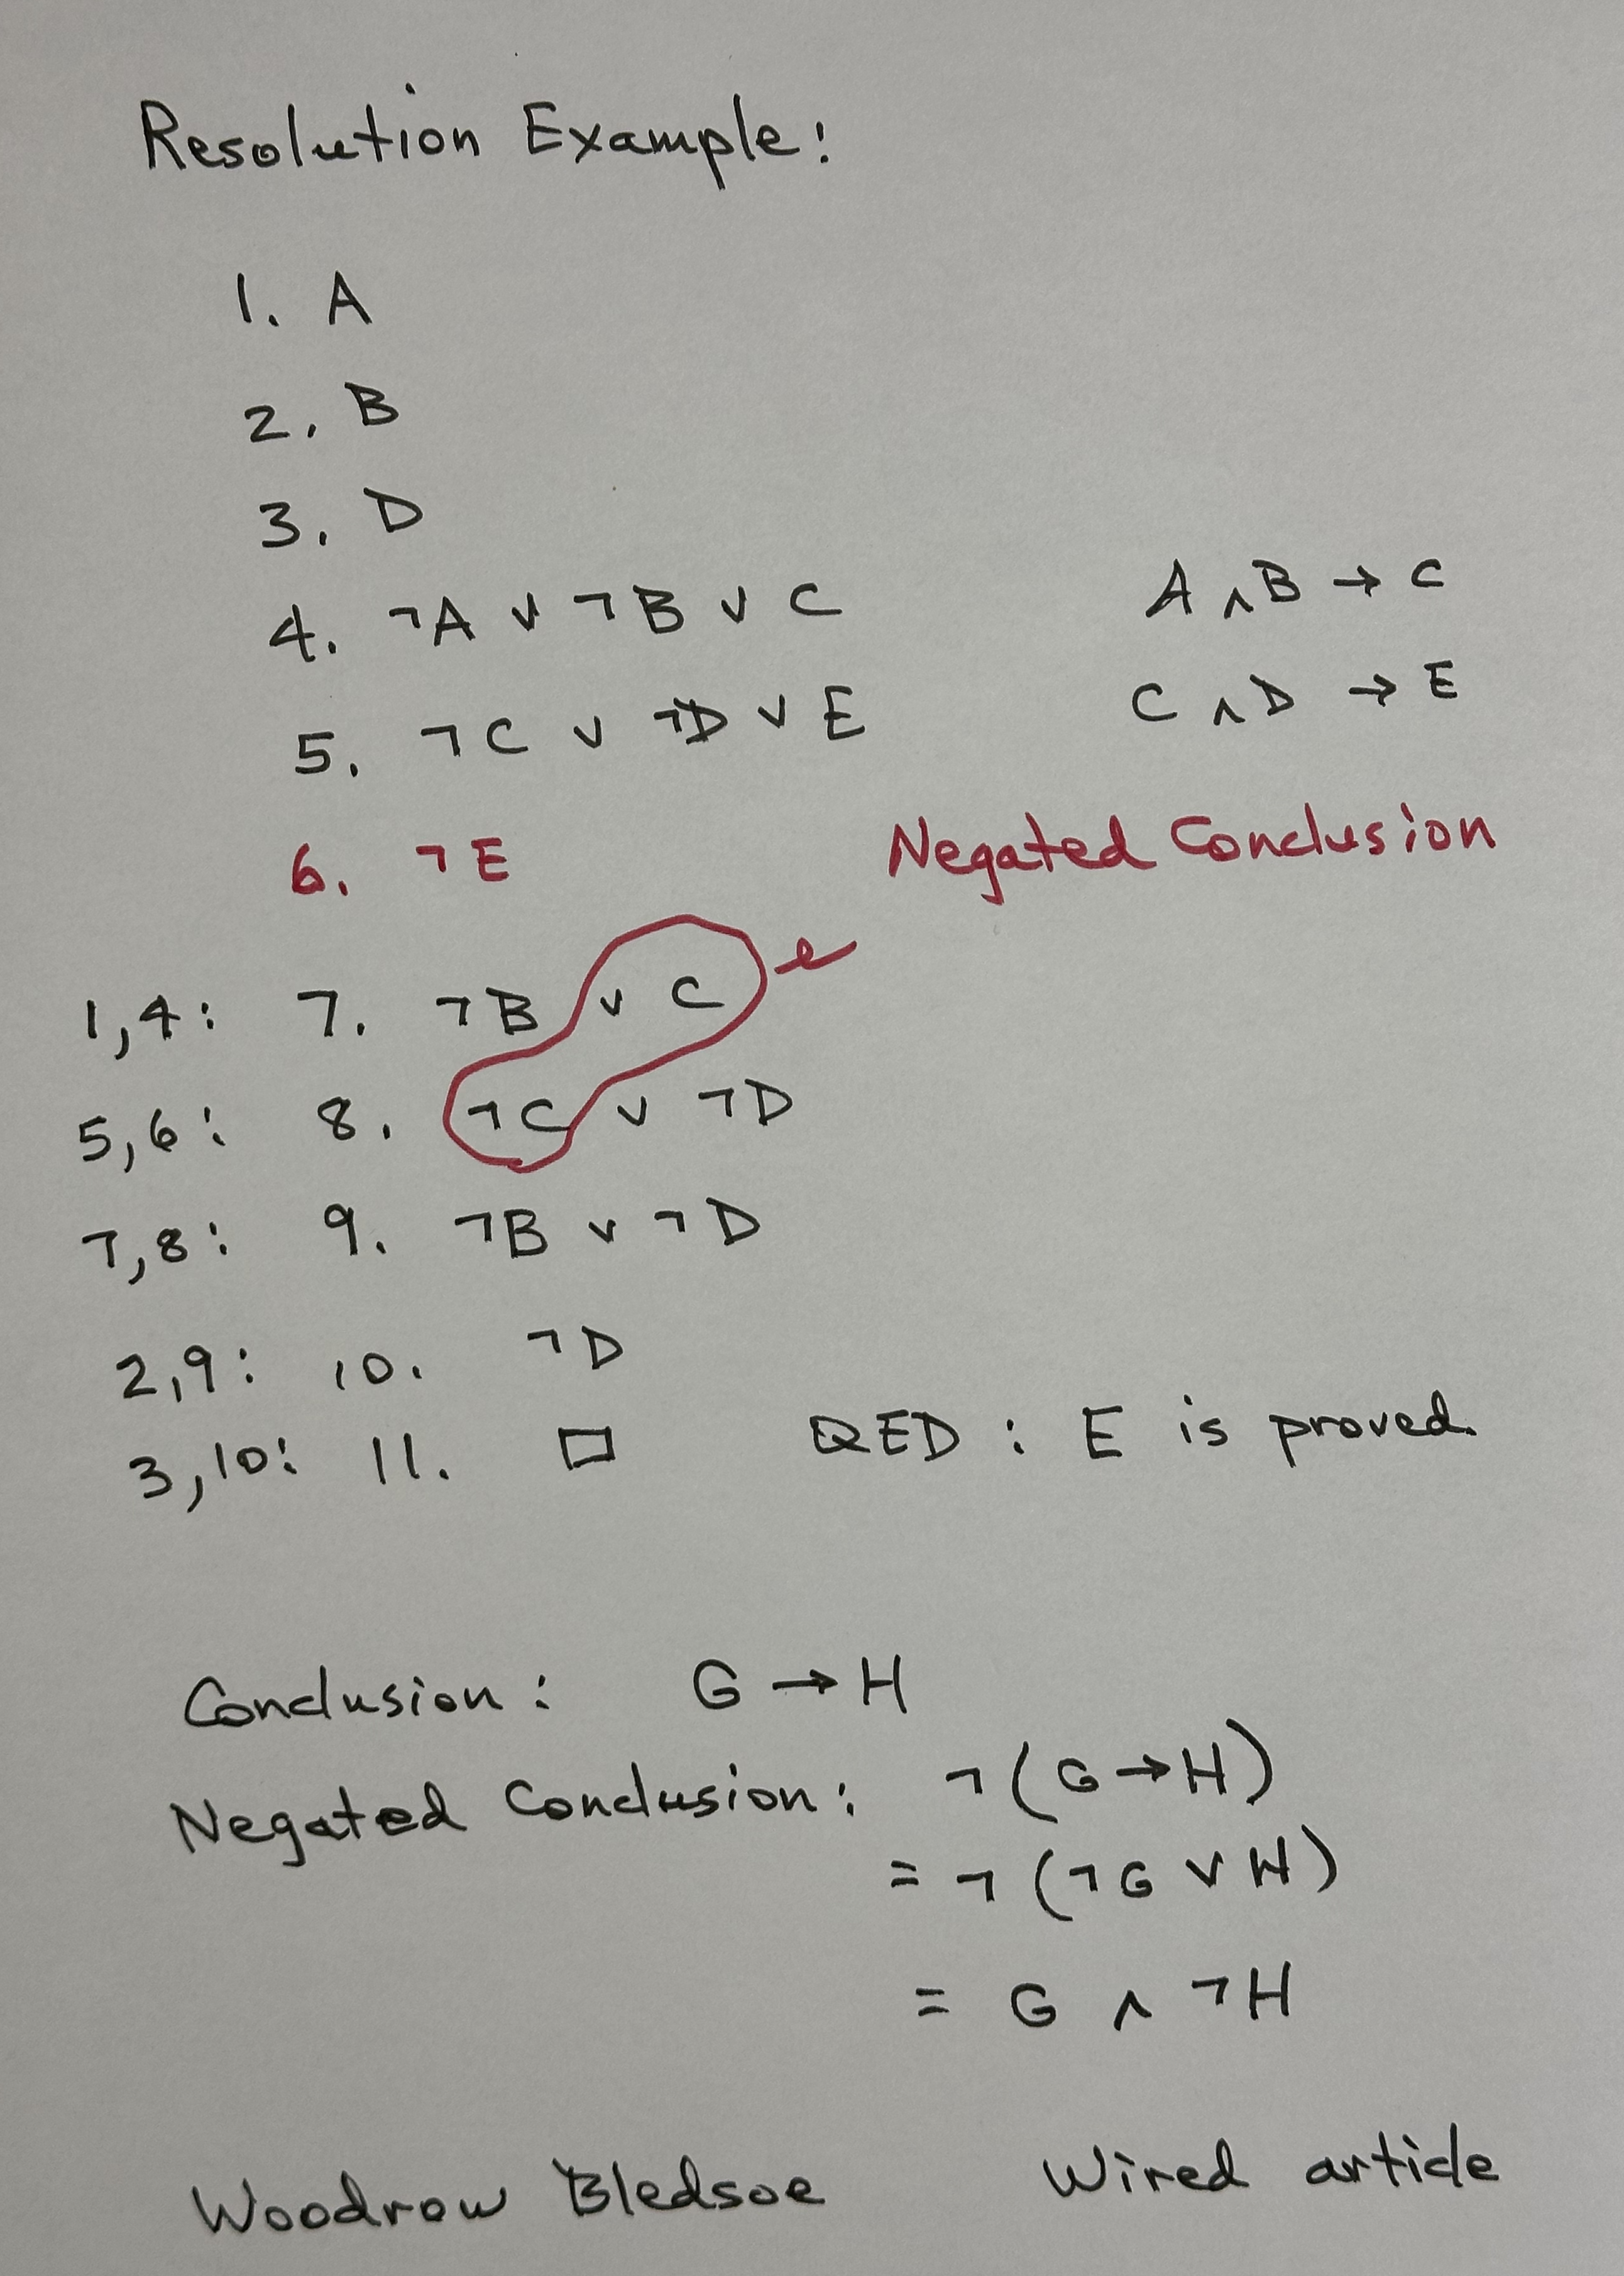 Resolution Example:
1. A
2. B
3. D
4. ¬A ∨ ¬B ∨ C A ∧ B → C
5. ¬C ∨ ¬D ∨ E C ∧ D → E
6. ¬E Negated Conclusion
1,4: 7. ¬B ∨ C
5,6: 8. ¬C ∨ ¬D
7,8: 9. ¬B ∨ ¬D
2,9: 10. ¬D
3,10: 11. □ QED : E is proved.
Conclusion: G → H
Negated Conclusion: ¬(G → H)
= ¬(¬G ∨ H)
= G ∧ ¬H
Woodrow Bledsoe Wired article